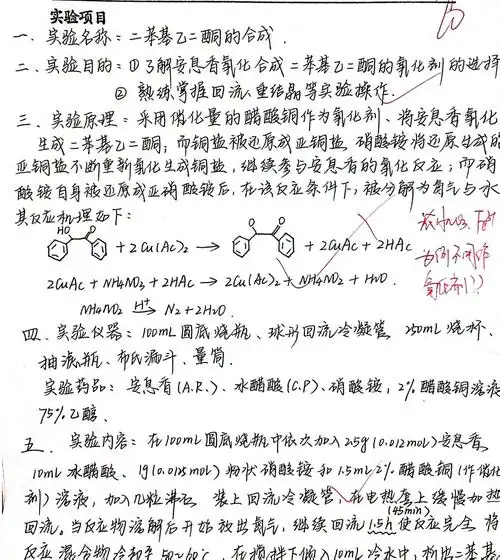 实验项目
一、实验名称：二苯基乙二酮的合成.
二、实验目的：①了解安息香氧化合成二苯基乙二酮的氧化剂的选择
② 熟练掌握回流、重结晶等实验操作.
三、实验原理：采用催化量的醋酸铜作为氧化剂、将安息香氧化
生成二苯基乙二酮，而铜盐被还原成亚铜盐。硝酸铵将还原生成的
亚铜盐不断重新氧化生成铜盐，继续参与安息香的氧化反应；而硝
酸铵自身被还原成亚硝酸铵后，在该反应条件下，被分解为氮气与水
其反应机理如下：
HO O + 2Cu(Ac)₂ → O O + 2CuAc + 2HAc
2CuAc + NH4NO3 + 2HAc → 2Cu(Ac)₂ + NH4NO2 + H2O.
NH4NO2 H⁺→ N2 + 2H2O.
四、实验仪器：100mL圆底烧瓶、球形回流冷凝管、250mL烧杯、
抽滤瓶、布氏漏斗、量筒.
实验药品：安息香(A.R.)、冰醋酸(C.P)、硝酸铵，2%醋酸铜溶液
75%乙醇.
五、实验内容：在100mL圆底烧瓶中依次加入2.5g(0.012mol)安息香、
10mL冰醋酸、1g(0.0125mol)粉状硝酸铵和1.5mL2%醋酸铜(作催化
剂)溶液，加入几粒沸石 装上回流冷凝管，在电热套上缓慢加热
回流。当反应物溶解后开始放出氮气，继续回流1.5h(45min)使反应完全 将
反应混合物冷却至50~60℃，在搅拌下倾入10mL冰水中，析出二苯基